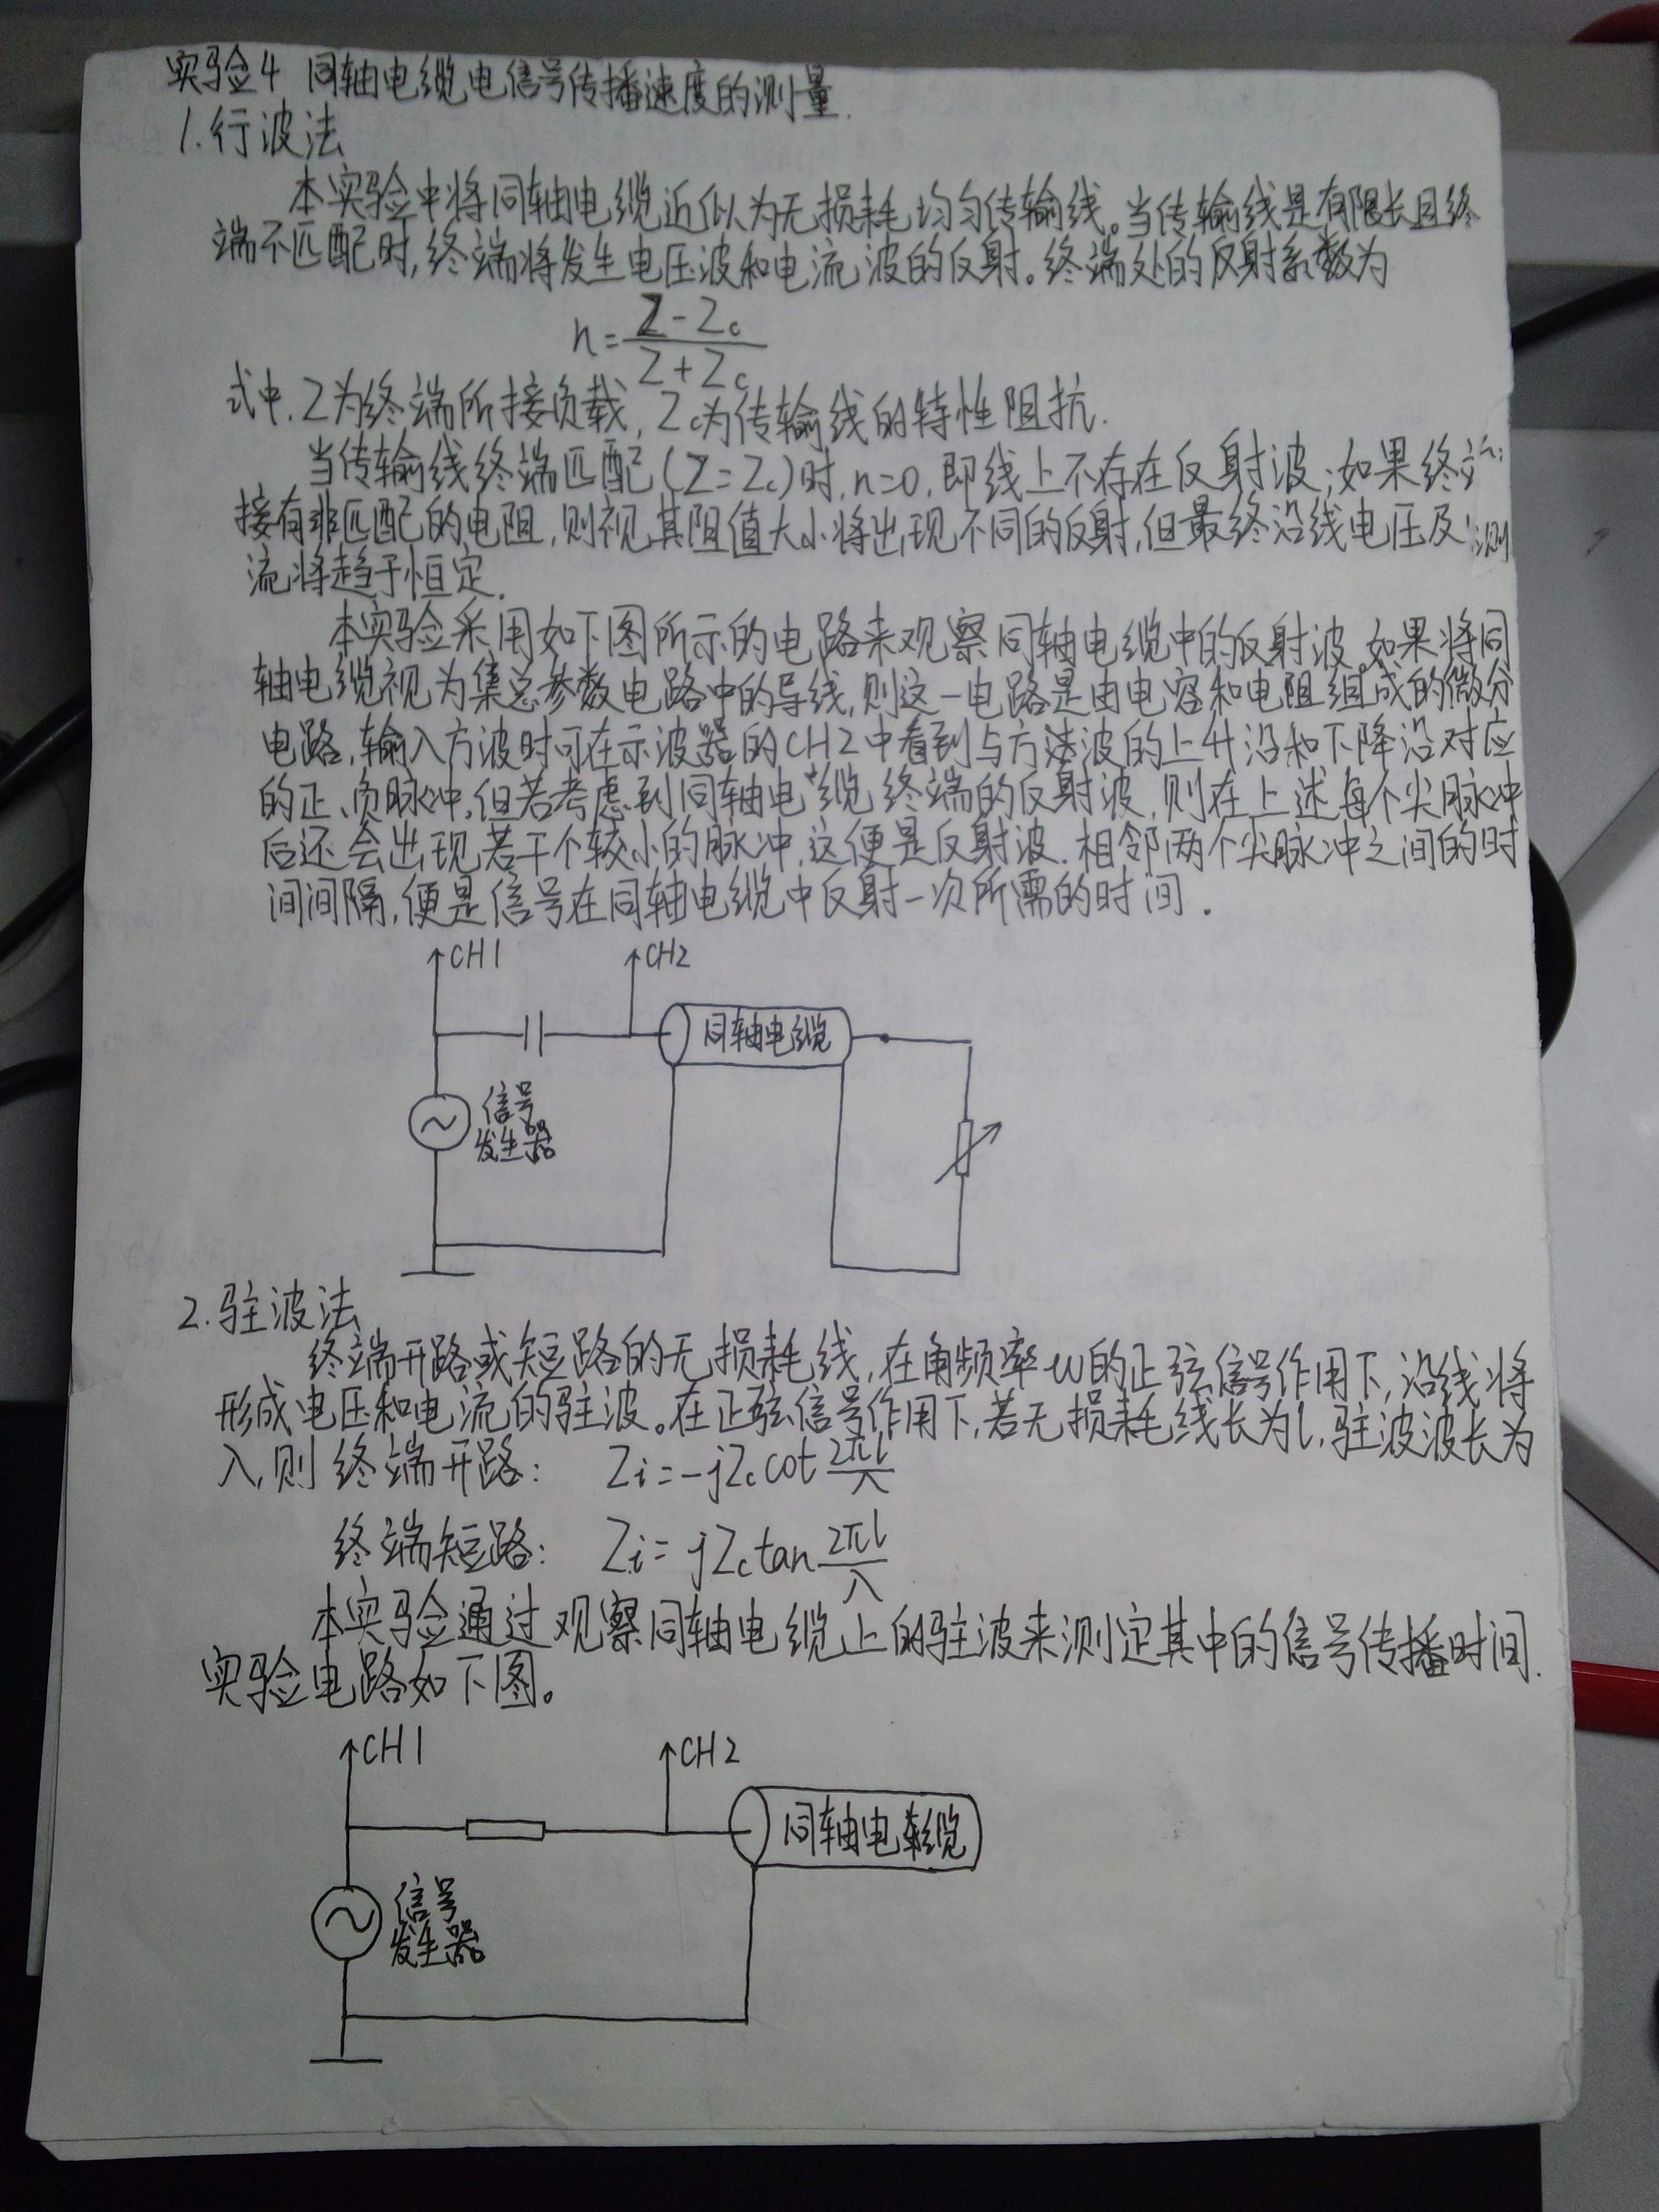 实验4 同轴电缆电信号传播速度的测量.
1.行波法
本实验中将同轴电缆近似为无损耗均匀传输线。当传输线是有限长且终
端不匹配时,终端将发生电压波和电流波的反射。终端处的反射系数为
n=\frac{Z-Zc}{Z+Zc}
式中.Z为终端所接负载,Zc为传输线的特性阻抗.
当传输线终端匹配(Z=Zc)时,n=0,即线上不存在反射波;如果终
接有非匹配的电阻,则视其阻值大小将出现不同的反射,但最终沿线电压及
流将趋于恒定.
本实验采用如下图所示的电路来观察同轴电缆中的反射波.如果将同
轴电缆视为集总参数电路中的导线,则这一电路是由电容和电阻组成的微分
电路,输入方波时可在示波器的CH2中看到与方波的上升沿和下降沿对应
的正、负脉冲,但若考虑到同轴电缆终端的反射波,则在上述每个尖脉冲
后还会出现若干个较小的脉冲,这便是反射波.相邻两个尖脉冲之间的时
间间隔,便是信号在同轴电缆中反射一次所需的时间.
CH1
CH2
同轴电缆
信号
发生器
2.驻波法
终端开路或短路的无损耗线,在角频率ω的正弦信号作用下,沿线将
形成电压和电流的驻波。在正弦信号作用下,若无损耗线长为l,驻波波长为
λ,则终端开路: Zi=-jZc cot\frac{2πl}{λ}
终端短路: Zi=jZc tan\frac{2πl}{λ}
本实验通过观察同轴电缆上的驻波来测定其中的信号传播时间.
实验电路如下图。
CH1
CH2
同轴电缆
信号
发生器